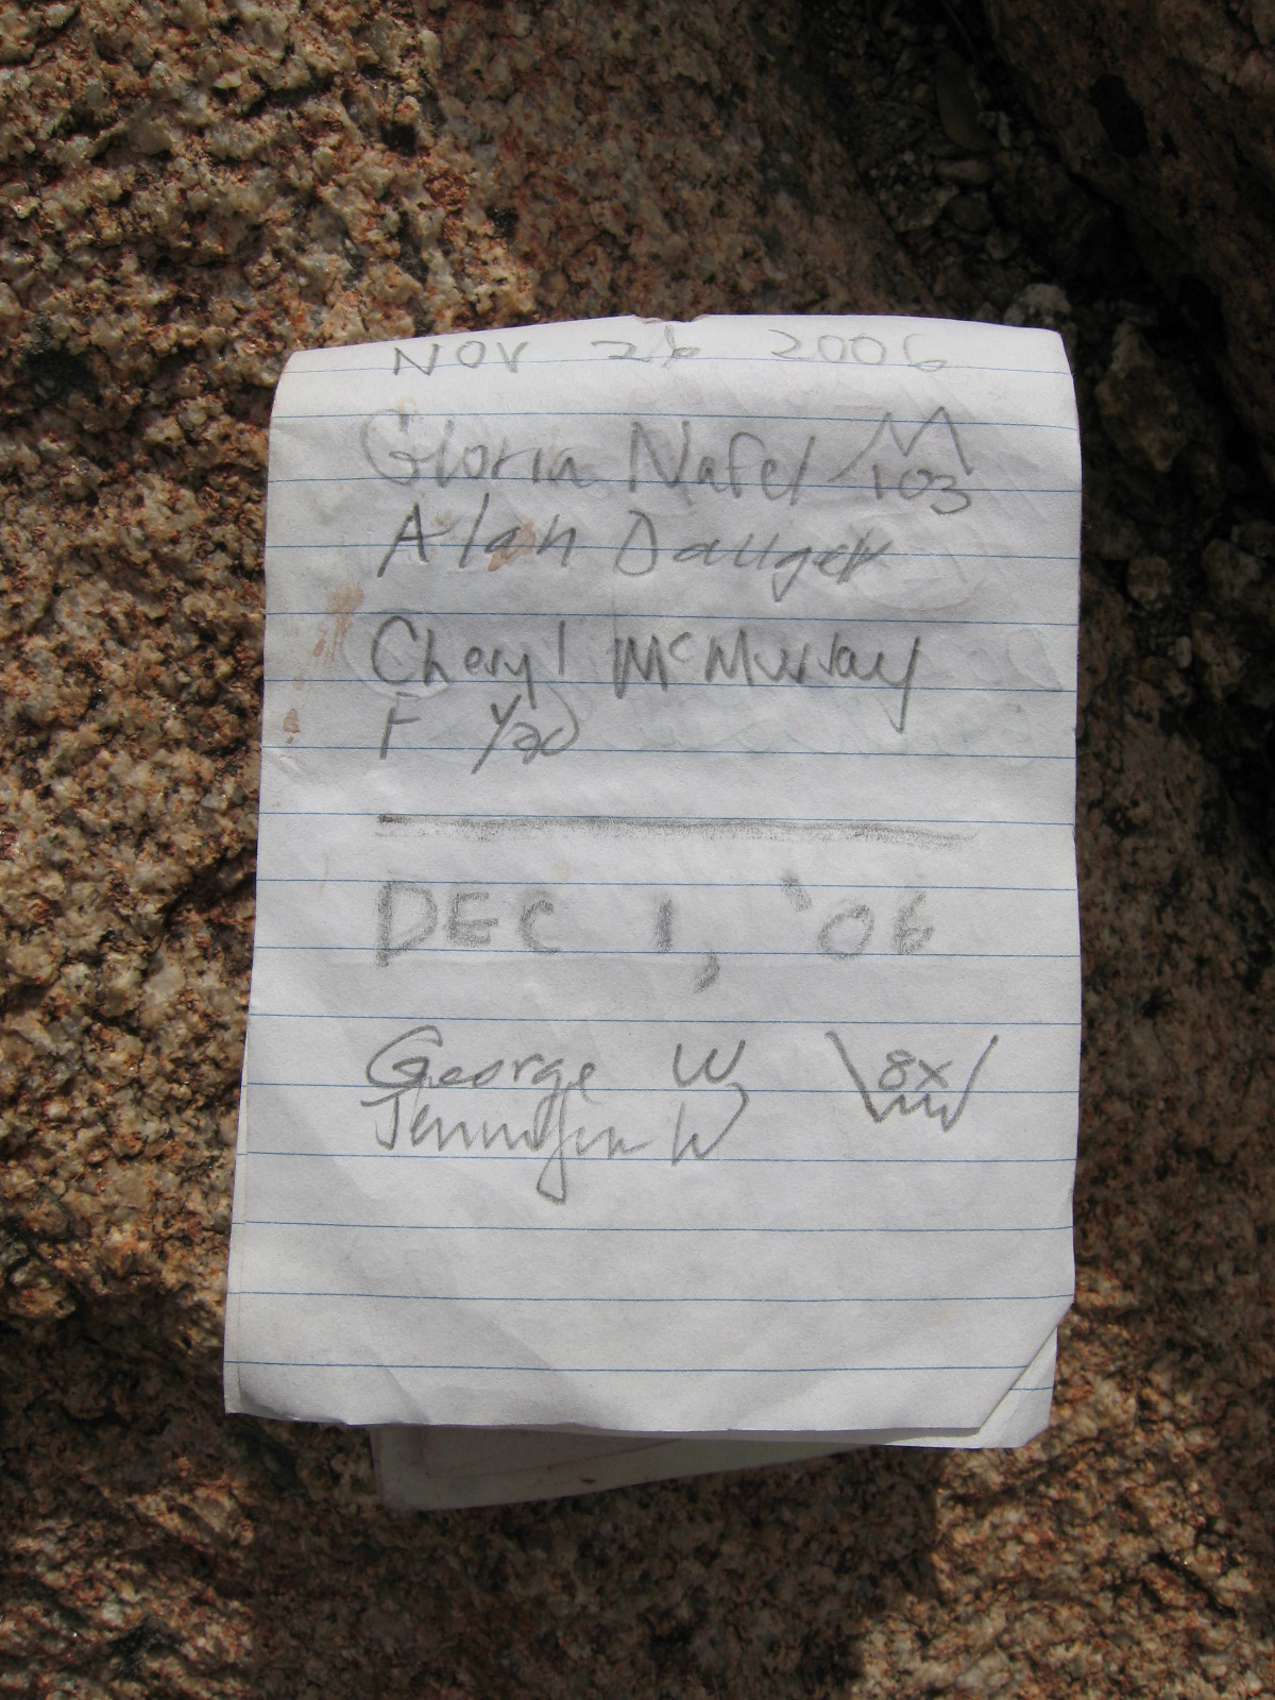 NOV 26 2006
Gloria Nafel 103
Alan Dauger
Cheryl McMurray
F
DEC 1, '06
George W 8X
Jennifer W